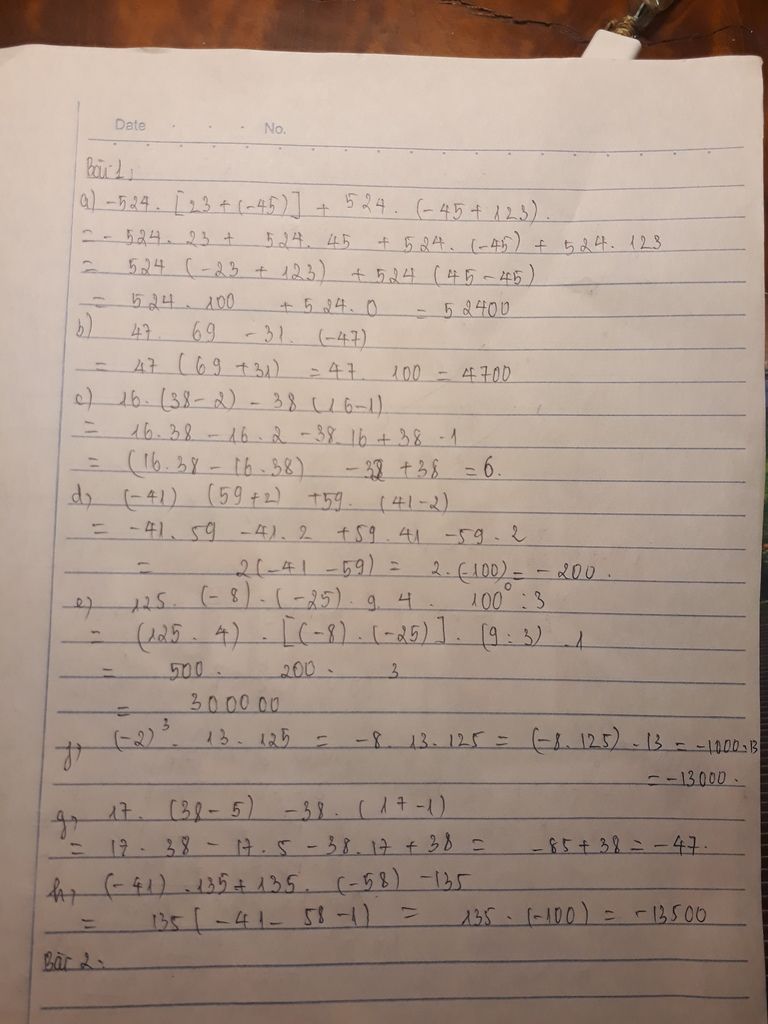 Date . . . No.
Bài 1:
a) -524. [23 + (-45)] + 524. (-45 + 123).
= - 524. 23 + 524. 45 + 524. (-45) + 524. 123
= 524 (-23 + 123) + 524 (45 - 45)
= 524. 100 + 524. 0 = 52400
b) 47. 69 - 31. (-47)
= 47 (69 + 31) = 47. 100 = 4700
c) 16. (38 - 2) - 38 (16 - 1)
= 16.38 - 16. 2 - 38.16 + 38 . 1
= (16.38 - 16.38) - 32 + 38 = 6.
d, (-41) (59 + 2) + 59. (41 - 2)
= -41. 59 - 41. 2 + 59. 41 - 59. 2
= 2(-41 - 59) = 2. (-100) = - 200.
e, 125. (-8). (-25). 9. 4. 100⁰ : 3
= (125. 4). [(-8). (-25)]. (9 : 3) . 1
= 500. 200. 3
= 300000
f, (-2)³. 13. 125 = -8. 13. 125 = (-8. 125). 13 = -1000. 13
= -13000.
g, 17. (38 - 5) - 38. (17 - 1)
= 17. 38 - 17. 5 - 38. 17 + 38 = -85 + 38 = -47.
h, (-41). 135 + 135. (-58) - 135
= 135 (-41 - 58 - 1) = 135. (-100) = -13500
Bài 2: